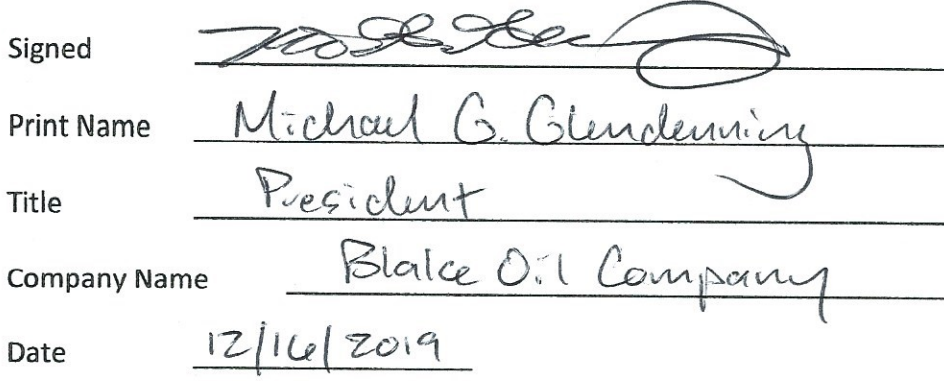 Signed
Print Name Michael G. Glendenning
Title President
Company Name Blake Oil Company
Date 12/16/2019